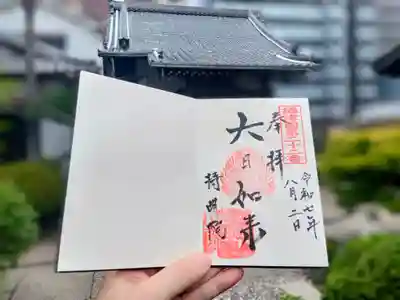 奉拝
大日如来
持明院
令和七年
八月二日